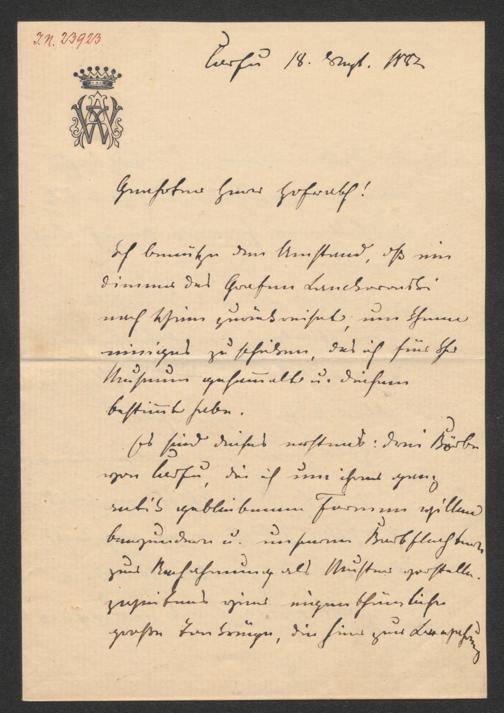 I.N. 23923
Corfu 18. Sept. 1882
Geehrter Herr Hofrath!
Ich benütze den Umstand, dß ein
Diener des Grafen Lanckoroński
nach Wien zurückreiset, um Ihnen
einiges zu schicken, das ich für Ihr
Museum gesammelt u. diesem
bestimmt habe.
Es sind dieses erstens: drei Körbe
von Corfu, die ich um ihrer ganz
antik gebliebenen Formen willen
bewundere u. unseren Korbflechtern
zur Nachahmung als Muster vorstelle.
zweitens eine eigenthümliche
große Tonkrüge, die hier zur